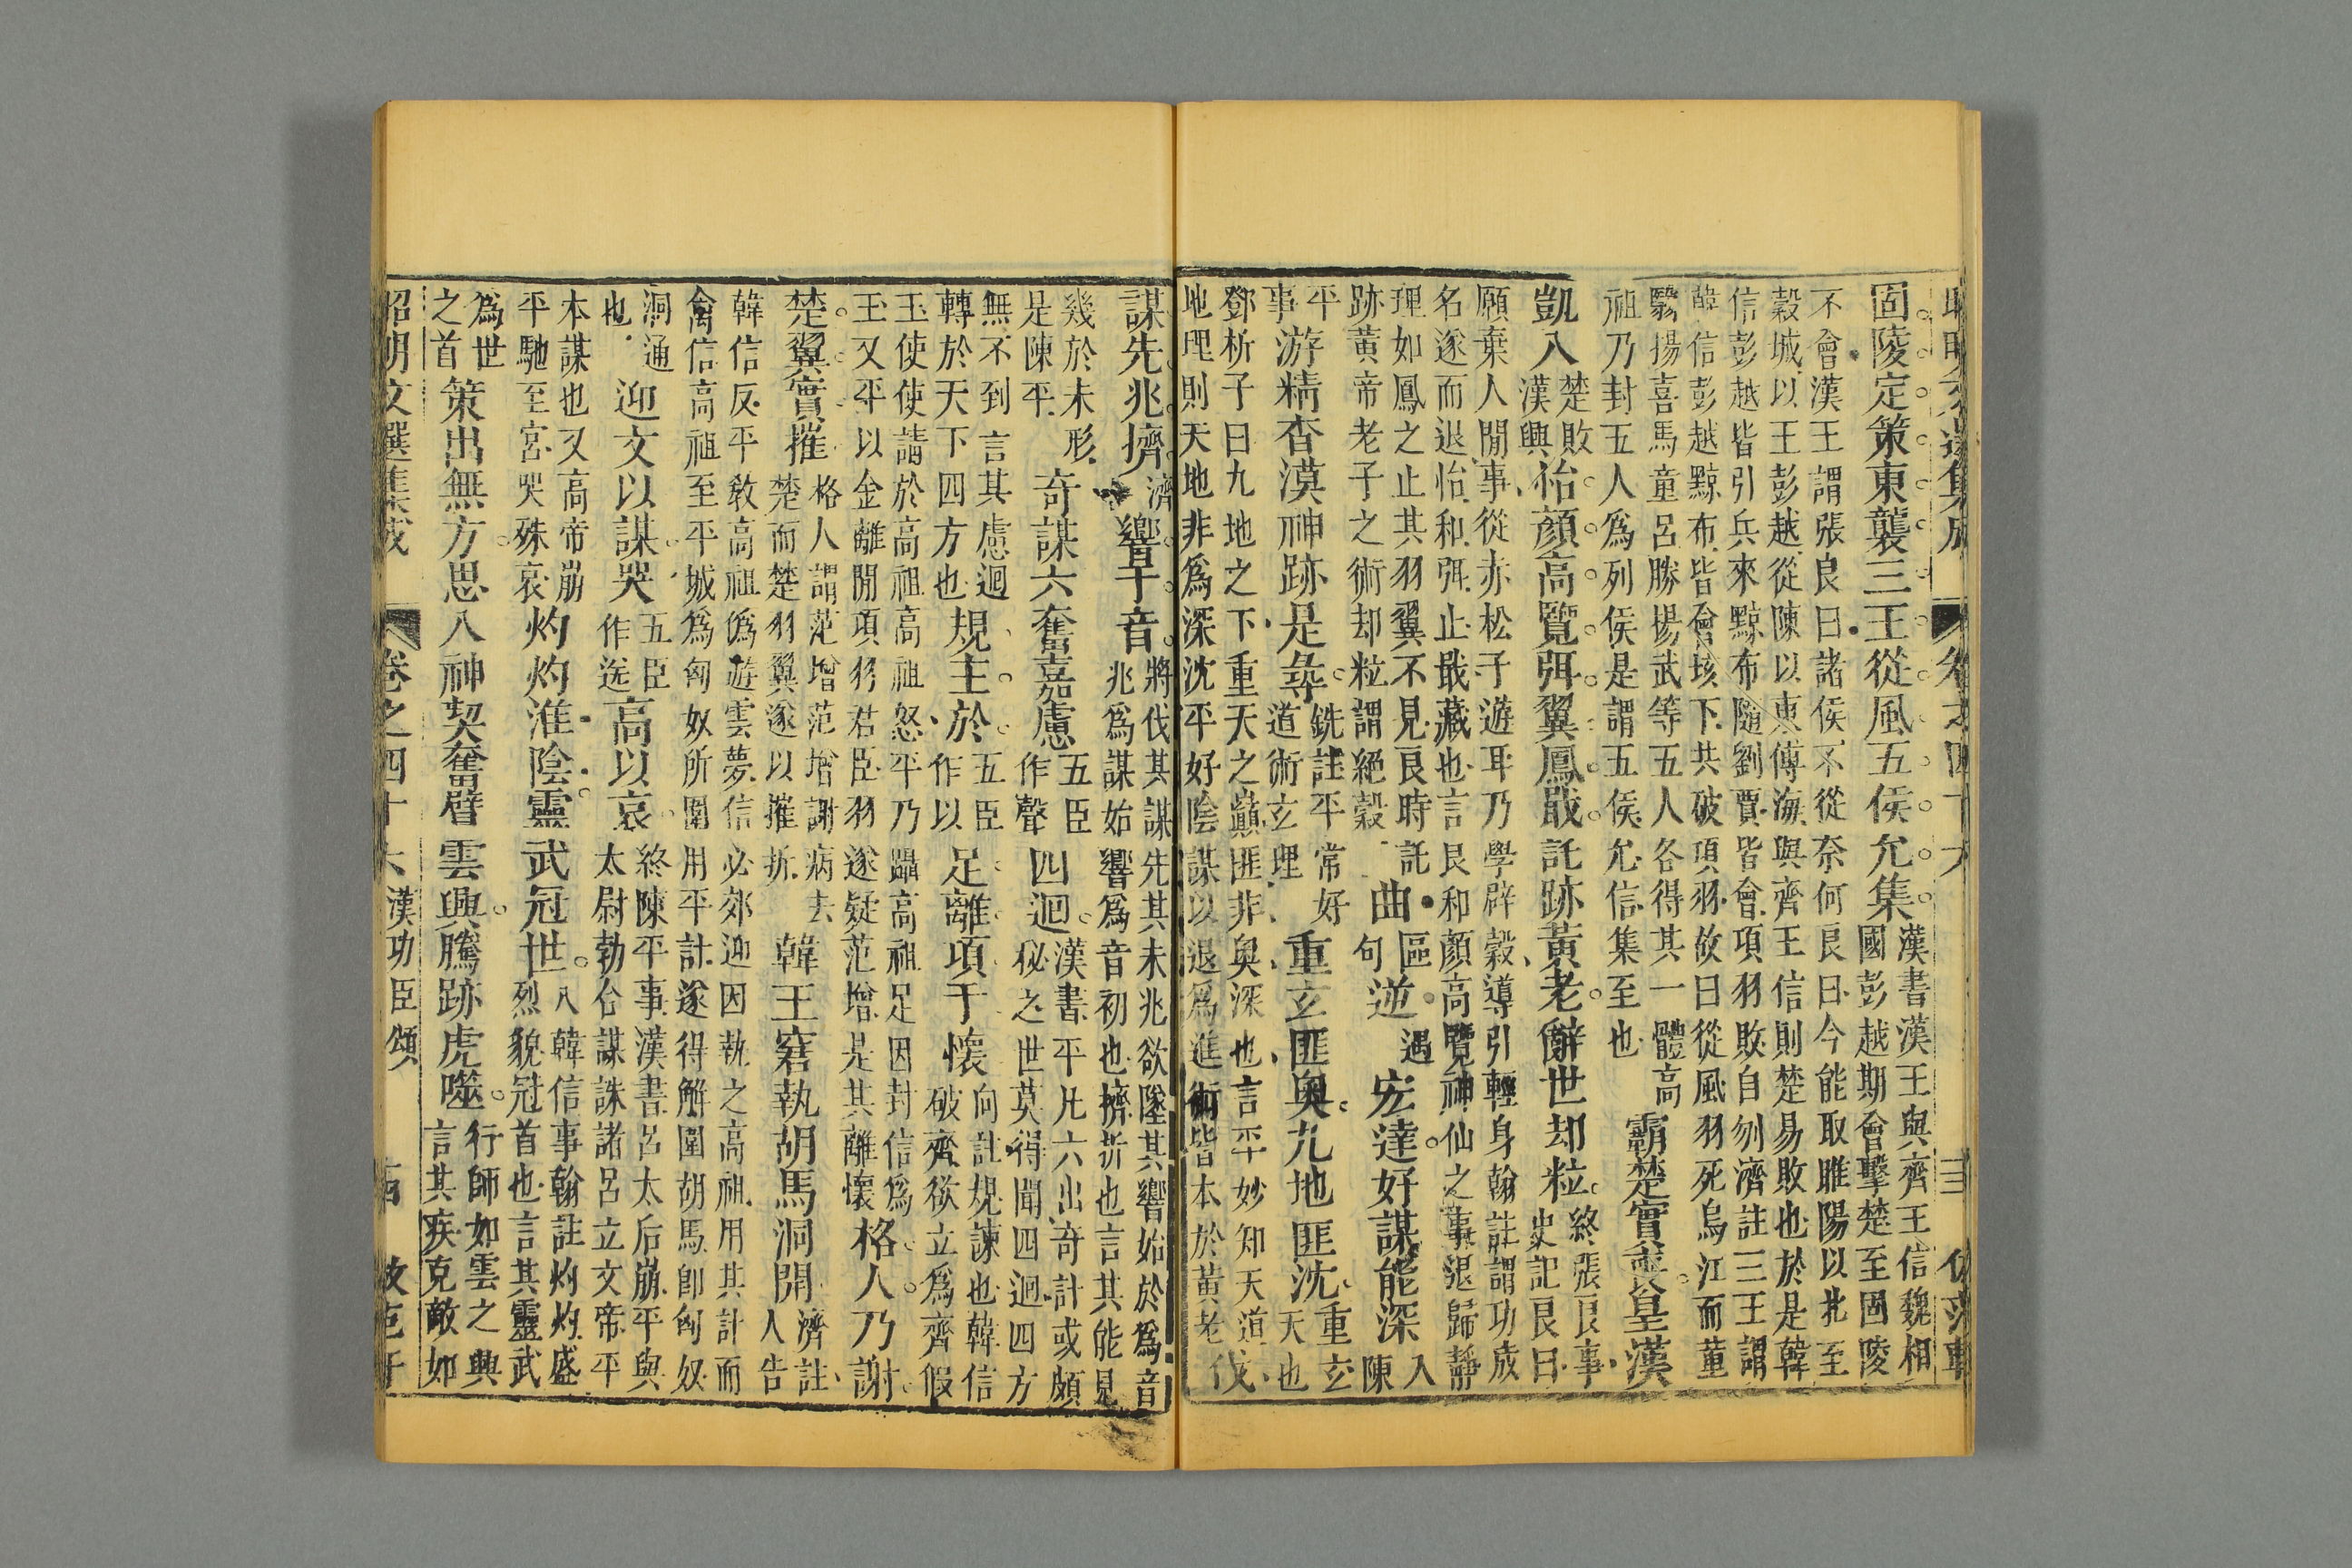 固陵定策東襲三王從風五侯允集漢書漢王與齊王信魏相
國彭越期會擊楚至固陵
不會漢王謂張良曰諸侯不從奈何良曰今能取睢陽以北至
穀城以王彭越從陳以東傳海與齊王信則楚易敗也於是韓
信彭越皆引兵來黥布隨劉賈皆會項羽敗自刎濟註三王謂
韓信彭越黥布皆會垓下共破項羽故曰從風羽死烏江而董
翳揚喜馬童呂勝揚武等五人各得其一體高
祖乃封五人爲列侯是謂五侯允信集至也霸楚實喪皇漢
凱入楚敗漢興怡顏高覽弭翼鳳戢託跡黃老辭世却粒終張良事
史記良曰
願棄人閒事從赤松子遊耳乃學辟穀導引輕身翰註謂功成
名遂而退怡和弭止戢藏也言良和顏高覽神仙之事退歸靜
理如鳳之止其羽翼不見良時託
跡黃帝老子之術却粒謂絕穀曲區句逆遇宏達好謀能深入陳
平事游精杳漠神跡是尋銑註平常好
道術玄理重玄匪奧九地匪沈重玄天也
鄧析子曰九地之下重天之巔匪非奧深也言平妙知天道
地理則天地非爲深沈平好陰謀以退爲進術皆本於黃老伐
謀先兆擠濟響于音將伐其謀先其未兆欲墜其響始於爲音
兆爲謀始響爲音初也擠折也言其能見
幾於未形是陳平奇謀六奮嘉慮五臣作聲四迴漢書平凡六出奇計或頗
秘之世莫得聞四迴四方
無不到言其慮迴
轉於天下四方也規主於五臣作以足離項于懷向註規諫也韓信
破齊欲立爲齊假
王使使請於高祖高祖怒平乃躡高祖足因封信爲
王又平以金離閒項羽君臣羽遂疑范增是其離懷格人乃謝
楚翼實摧格人謂范增范增謝病去
楚而楚羽翼遂以摧折韓王窘執胡馬洞開濟註人告
韓信反平敎高祖僞遊雲夢信必郊迎因執之高祖用其計而
禽信高祖至平城爲匈奴所圍用平計遂得解圍胡馬卽匈奴
洞通也迎文以謀哭五臣作送高以哀終陳平事漢書呂太后崩平與
太尉勃合謀誅諸呂立文帝平
本謀也又高帝崩
平馳至宮哭殊哀灼灼淮陰靈武冠世入韓信事翰註灼灼盛
烈貌冠首也言其靈武
爲世之首策出無方思入神契奮臂雲興騰跡虎噬行師如雲之興
言其疾克敵如
昭明文選集成 卷之四十六 漢功臣頌